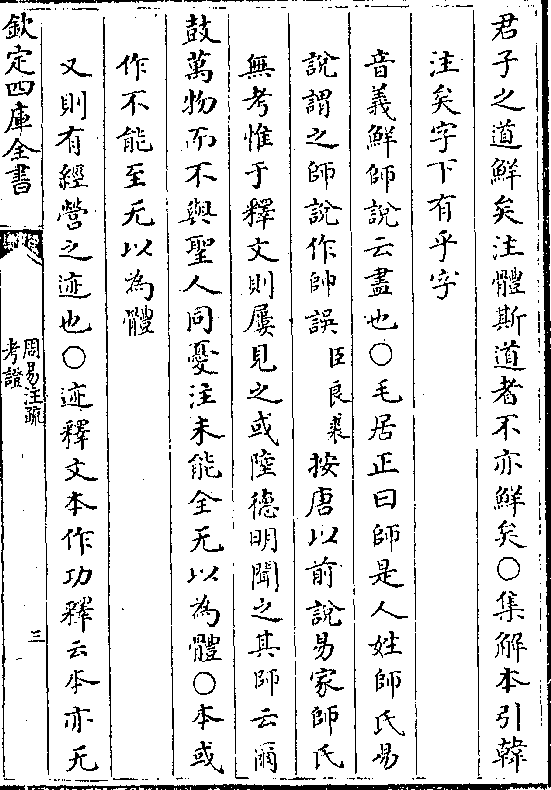 君子之道鮮矣注體斯道者不亦鮮矣○集解本引韓
注矣字下有乎字
音義鮮師說云盡也○毛居正曰師是人姓師氏易
說謂之師說作帥誤臣良裘按唐以前說易家師氏
無考惟于釋文則屢見之或陸德明聞之其師云爾
鼓萬物而不與聖人同憂注未能全无以為體○本或
作不能至无以為體
又則有經營之迹也○迹釋文本作功釋云本亦无
欽定四庫全書
周易注疏
考證
三